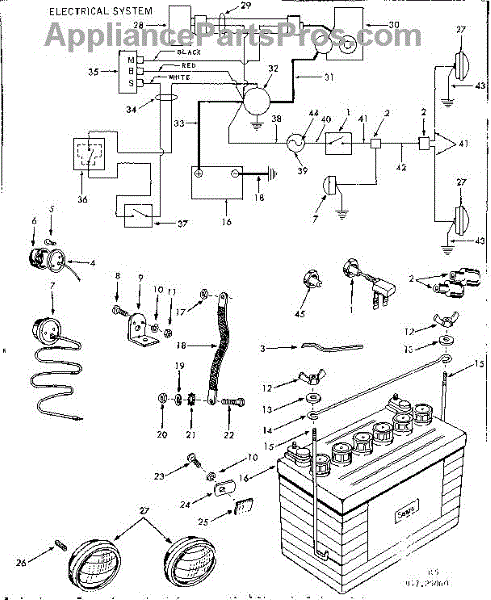 ELECTRICAL SYSTEM
AppliancePartsPros.com
28
29
30
27
M
B
S
BLACK
RED
WHITE
35
32
31
34
33
38
44
40
1
41
2
2
43
42
41
36
37
39
16
18
7
27
43
5
6
4
7
8
9
10
11
17
18
45
1
2
3
12
13
12
13
14
15
15
20
19
21
22
23
10
16
24
25
Sears
26
27